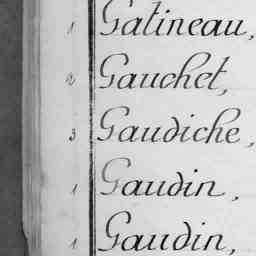 1 Gatineau,
2 Gauchet,
3 Gaudiche,
1 Gaudin,
1 Gaudin,